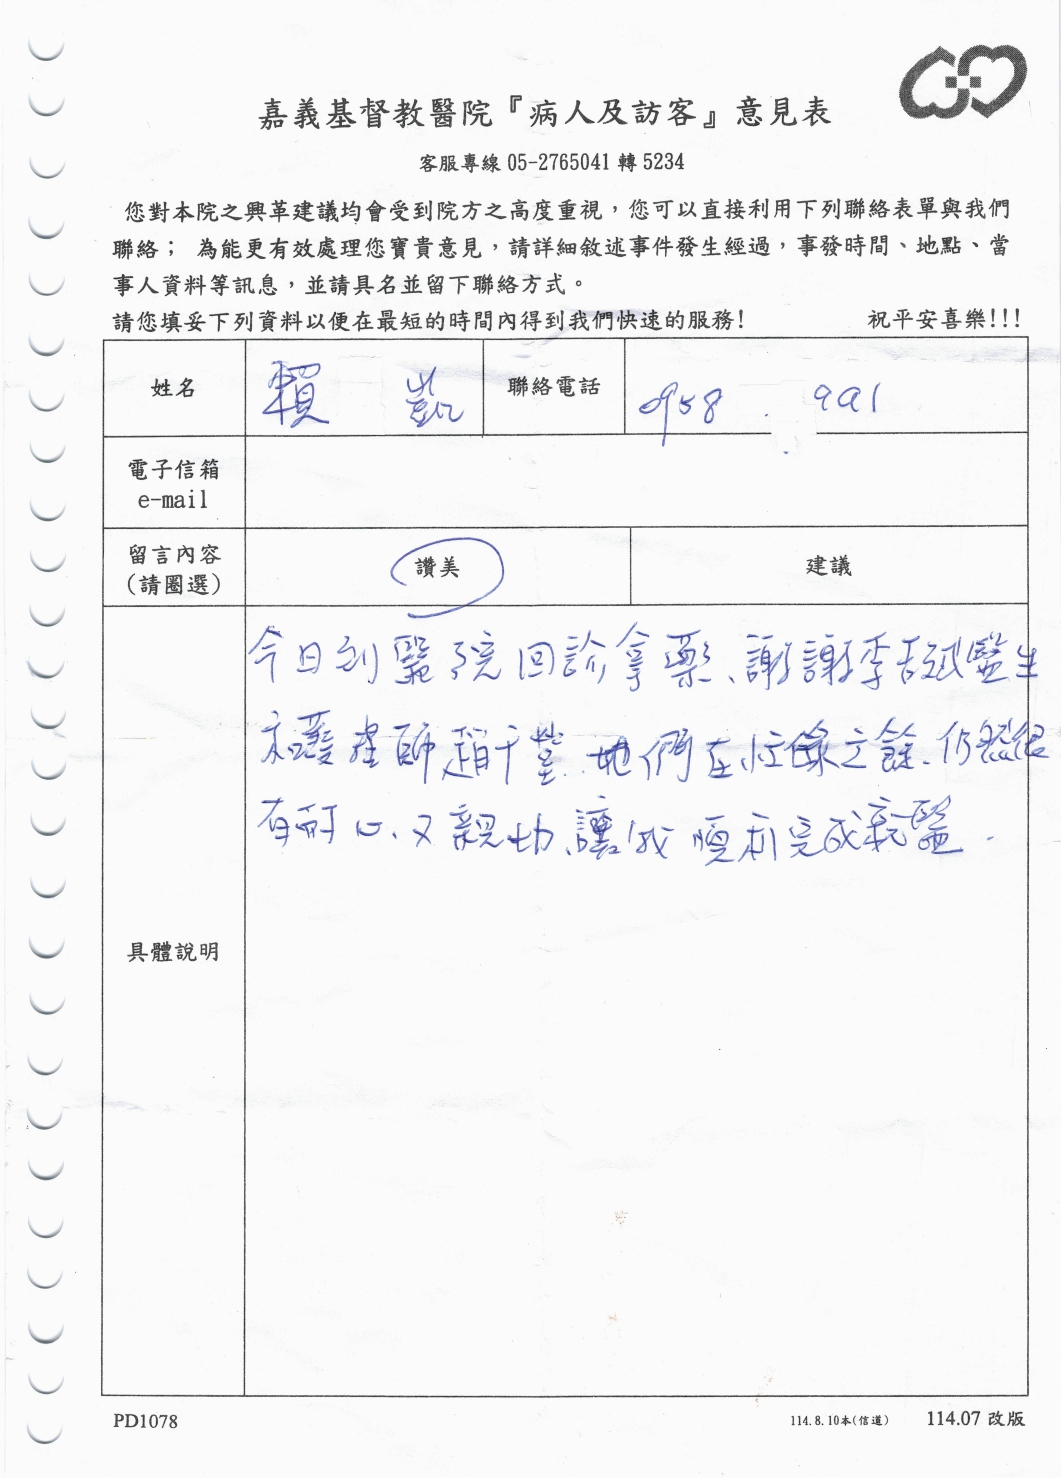 嘉義基督教醫院『病人及訪客』意見表
客服專線 05-2765041 轉 5234
您對本院之興革建議均會受到院方之高度重視，您可以直接利用下列聯絡表單與我們
聯絡； 為能更有效處理您寶貴意見，請詳細敘述事件發生經過，事發時間、地點、當
事人資料等訊息，並請具名並留下聯絡方式。
請您填妥下列資料以便在最短的時間內得到我們快速的服務! 祝平安喜樂!!!
姓名 賴 凱 聯絡電話 0958 991
電子信箱
e-mail
留言內容
(請圈選)
讚美 建議
具體說明
今日到醫院回診拿藥、謝謝李吉斌醫生
和護理師趙千瑩、她們在忙碌之餘、仍然很
有耐心、又親切、讓我順利完成就醫.
PD1078 114.8.10本(信道) 114.07 改版